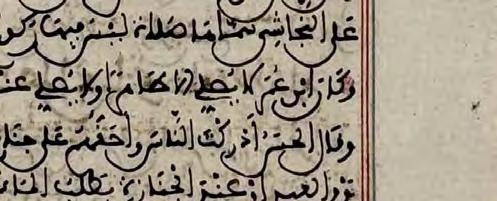 على النجاشي سماها صلاة ليس فيها ركو
وكان ابن عمر لا يصلي إلا طاهرا ولا يصلي عند
وقال الحسن أدركت الناس وأحقهم على جنا
يوم العيد أو عند الجنازة يطلب الماء